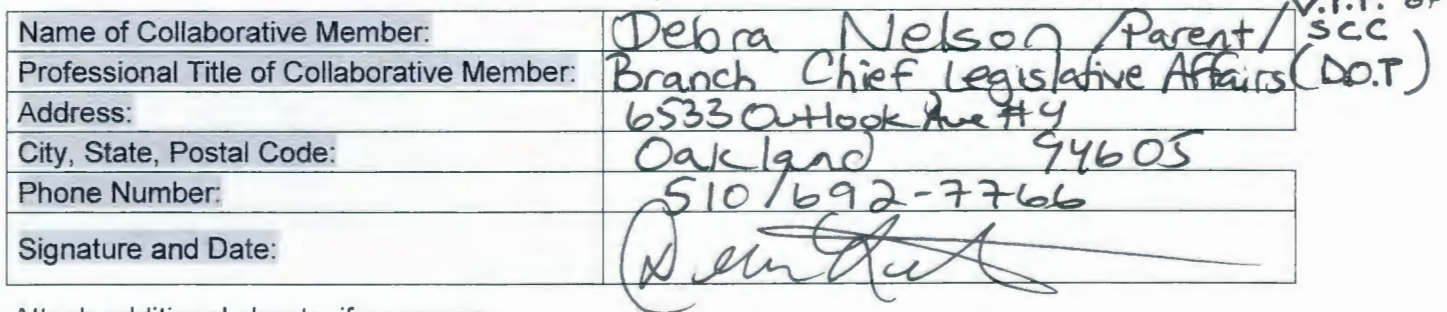 V.I.P. of
Name of Collaborative Member: Debra Nelson /Parent/ SCC
Professional Title of Collaborative Member: Branch Chief Legislative Affairs (D.O.T)
Address: 6533 Outlook Ave #4
City, State, Postal Code: Oakland 94605
Phone Number: 510/692-7766
Signature and Date: